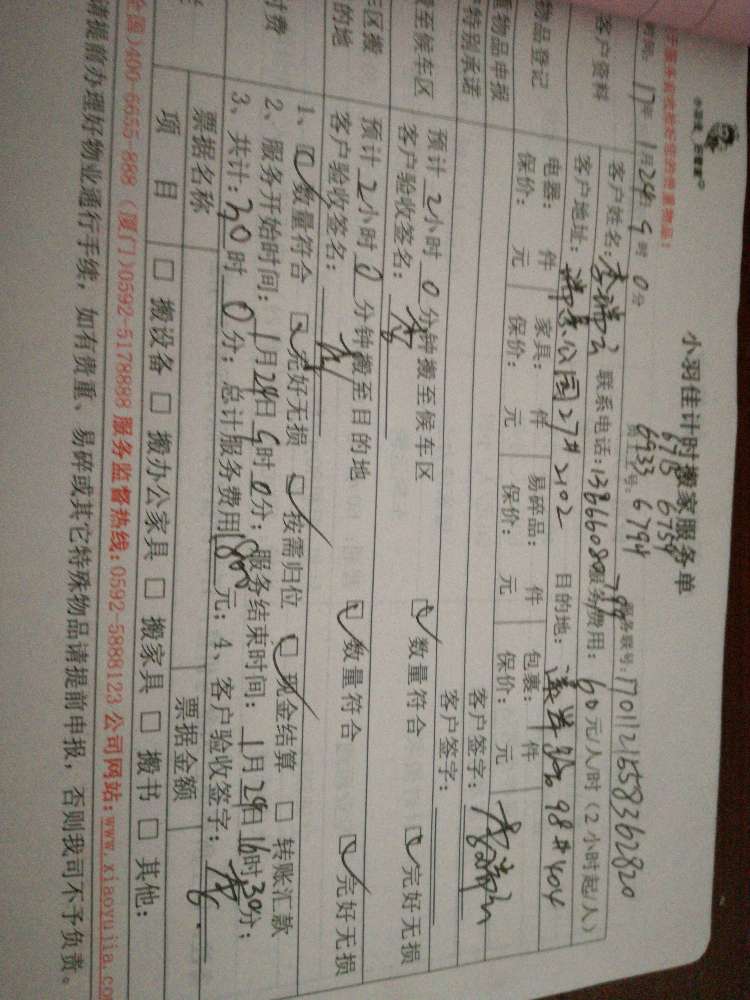 小羽佳计时搬家服务单
6715 6759
员工工号: 6933 6794
服务联号: 170112165836 2820
时间: 17年1月24日9时0分
客户资料
客户姓名: 李瑞云 联系电话: 服务费用: 60元/人/时(2小时起/人)
客户地址: 瑞景公园27#2102 目的地: 98#404
物品登记
电器: 件 家具: 件 易碎品: 件 包裹: 件
保价: 元 保价: 元 保价: 元 保价: 元
物品申报
客户签字:
特别承诺
客户签字:
搬至候车区
预计2小时0分钟搬至候车区 数量符合 完好无损
客户验收签名:
车区搬
的地
预计2小时0分钟搬至目的地 数量符合 完好无损
客户验收签名:
付费
1、数量符合 完好无损 按需归位 现金结算 □ 转账汇款
2、服务开始时间: 1月24日9时0分; 服务结束时间: 1月24日16时30分;
3、共计: 30时0分; 总计服务费用1800元; 4、客户验收签字:
票据名称 票据金额
项目 □ 搬设备 □ 搬办公家具 □ 搬家具 □ 搬书 □ 其他:
全国)400-6655-888 (厦门)0592-5178888 服务监督热线:0592-5888123 公司网站:www.xiaoyujia.co
请提前办理好物业通行手续,如有贵重、易碎或其它特殊物品请提前申报,否则我司不予负责。